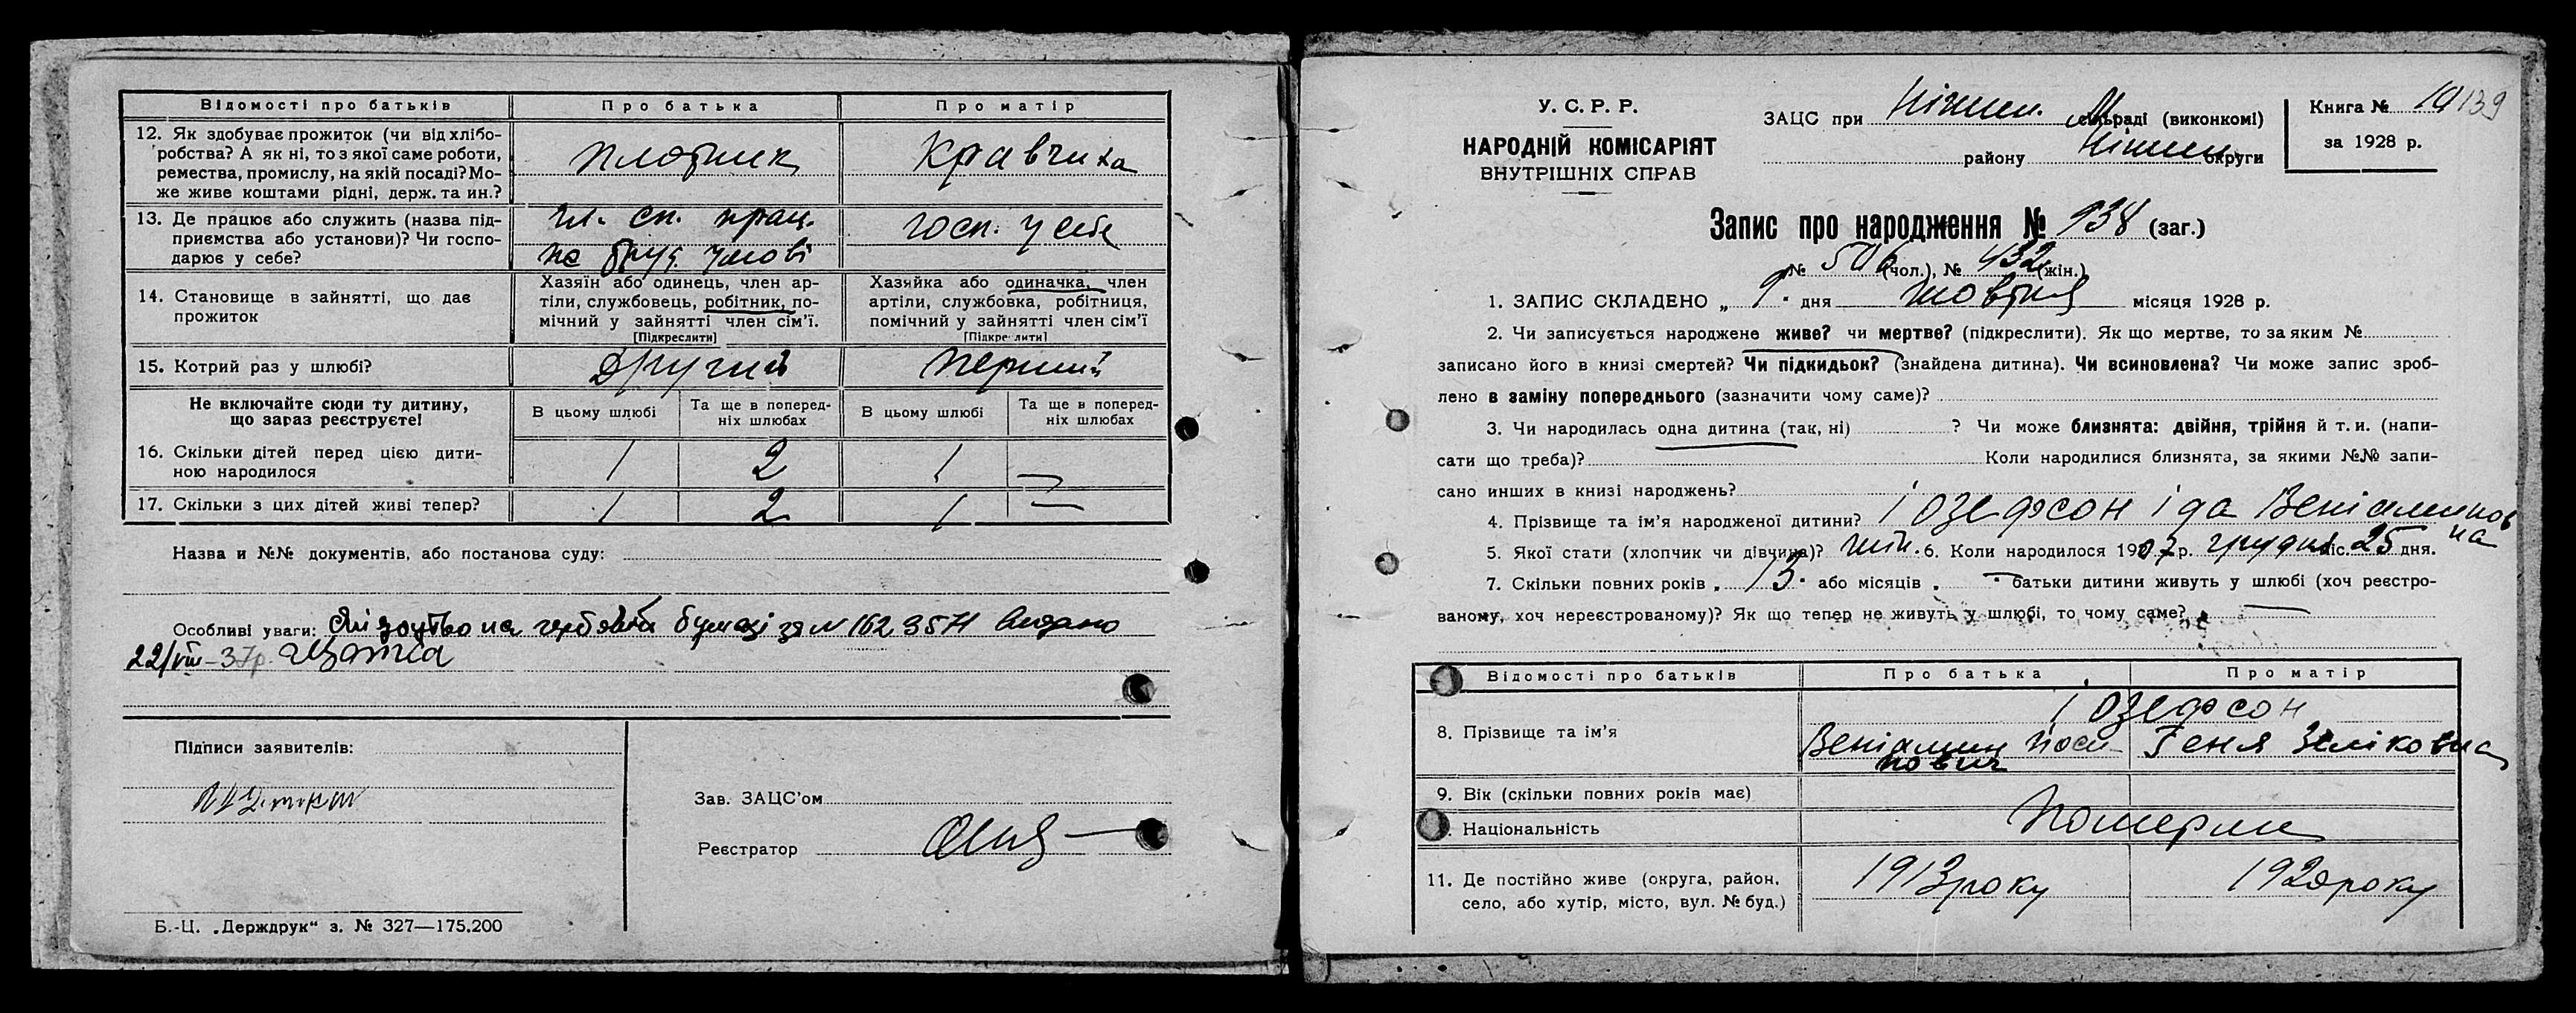 Відомості про батьків Про батька Про матір
12. Як здобуває прожиток (чи від хлібо-
робства? А як ні, то з якої саме роботи,
ремества, промислу, на якій посаді? Мо-
же живе коштами рідні, держ. та ин.?
плотник Кравчиха
13. Де працює або служить (назва під-
приємства або установи)? Чи госпо-
дарює у себе?
чл. сп. прац.
по труд. умові
госп. у себе
14. Становище в зайнятті, що дає
прожиток
Хазяїн або одинець, член ар-
тілі, службовець, робітник, по-
мічний у зайнятті член сім'ї.
[Підкреслити]
Хазяйка або одиначка, член
артілі, службовка, робітниця,
помічний у зайнятті член сім'ї
[Підкреслити]
15. Котрий раз у шлюбі? Другий перший
Не включайте сюди ту дитину,
що зараз реєструєте!
В цьому шлюбі Та ще в поперед-
ніх шлюбах В цьому шлюбі Та ще в поперед-
ніх шлюбах
16. Скільки дітей перед цією дити-
ною народилося 1 2 1 —
17. Скільки з цих дітей живі тепер? 1 2 1 —
Назва и №№ документів, або постанова суду:
Особливі уваги: на бумазі за № 162357 видано
22/VIII-37р.
Підписи заявителів:
Зав. ЗАЦС'ом
Реєстратор
Б.-Ц. „Держдрук“ з. № 327—175.200
У. С. Р. Р.
НАРОДНІЙ КОМІСАРІЯТ
ВНУТРІШНІХ СПРАВ
ЗАЦС при Ніжин. сільраді (виконкомі)
району Ніжин. округи
Книга № 10 139
за 1928 р.
Запис про народження № 938 (заг.)
№ 506 (чол.), № 432 (жін.)
1. ЗАПИС СКЛАДЕНО „ 9 " дня жовтня місяця 1928 р.
2. Чи записується народжене живе? чи мертве? (підкреслити). Як що мертве, то за яким №
записано його в книзі смертей? Чи підкидьок? (знайдена дитина). Чи всиновлена? Чи може запис зроб-
лено в заміну попереднього (зазначити чому саме)?
3. Чи народилась одна дитина (так, ні) ? Чи може близнята: двійня, трійня й т. и. (напи-
сати що треба)? Коли народилися близнята, за якими №№ запи-
сано инших в книзі народжень?
4. Прізвище та ім'я народженої дитини? Іозефсон Іда Веніаминов
на
5. Якої стати (хлопчик чи дівчина)? жін. 6. Коли народилося 1907 р. грудня міс. 25 дня.
7. Скільки повних років „ 13 " або місяців „ " батьки дитини живуть у шлюбі (хоч реєстро-
ваному, хоч нереєстрованому)? Як що тепер не живуть у шлюбі, то чому саме? —
Відомості про батьків Про батька Про матір
8. Прізвище та ім'я
Іозефсон
Веніамин Йоси-
пович
Геня Зеліковна
9. Вік (скільки повних років має)
Національність
Померли
11. Де постійно живе (округа, район,
село, або хутір, місто, вул. № буд.)
1913 року 1920 року